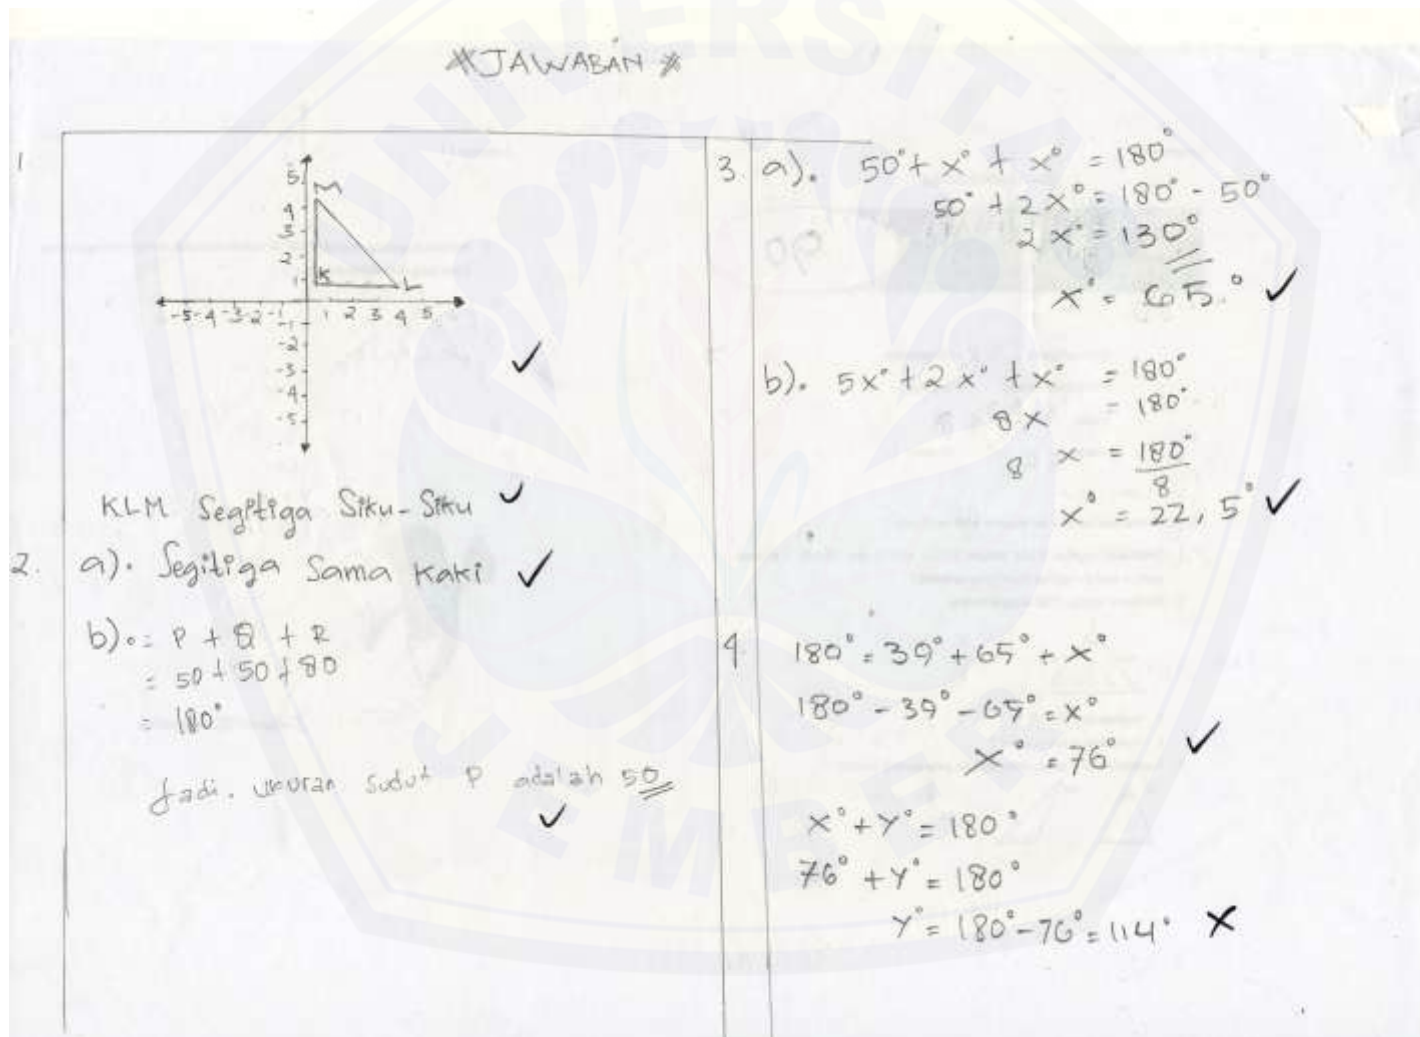 JAWABAN
1
5
M
4
3
2
1
K
L
-5 -4 -3 -2 -1 1 2 3 4 5
-1
-2
-3
-4
-5
KLM Segitiga Siku-Siku ✓
2. a). Segitiga Sama Kaki ✓
b). = P + Q + R
= 50 + 50 + 80
= 180°
Jadi. ukuran sudut P adalah 50
3. a). 50° + x° + x° = 180°
50° + 2x° = 180° - 50°
2x° = 130°
x° = 65.° ✓
b). 5x° + 2x° + x° = 180°
8x = 180°
8 x = 180°
8
x° = 22,5° ✓
4. 180° = 39° + 65° + x°
180° - 39° - 65° = x°
x° = 76° ✓
x° + y° = 180°
76° + y° = 180°
y° = 180° - 76° = 114° X
UNIVERSITAS
JEMBER